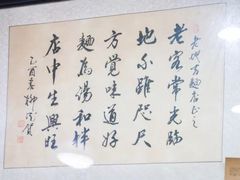 老地方麵店正之
老客常光臨
地不雖咫尺
方覺味道好
麵為湯和拌
店中生興旺
乙酉春柳